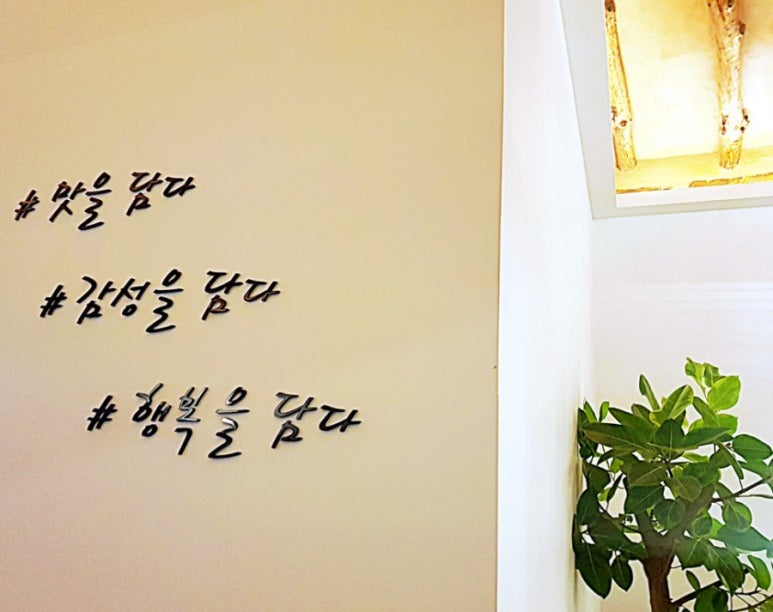 # 맛을 담다
# 감성을 담다
# 행복을 담다